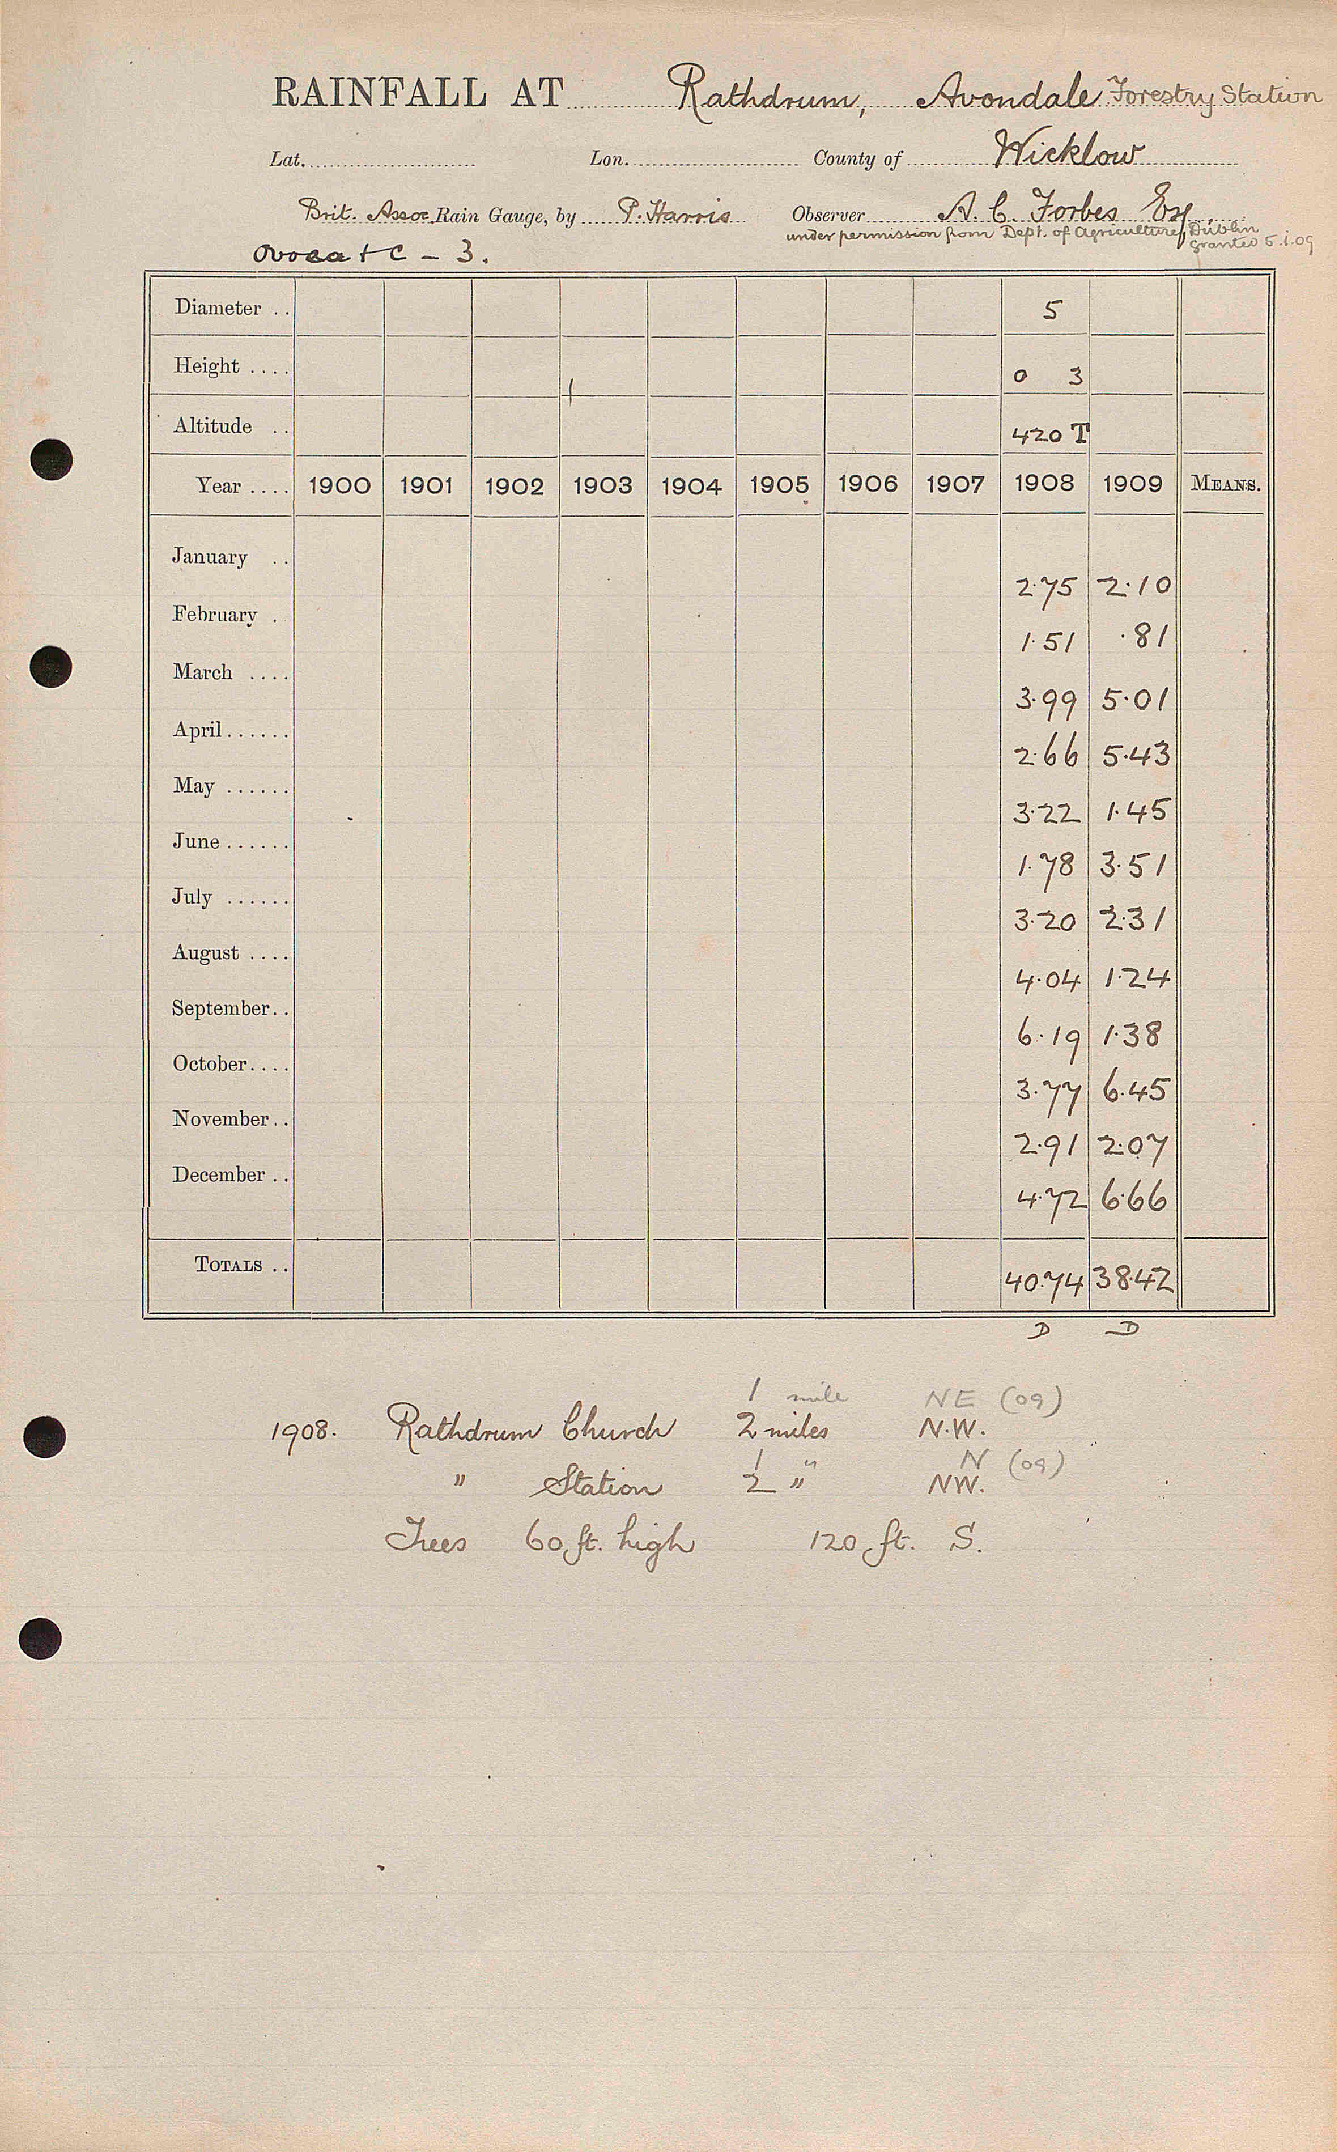 RAINFALL AT Rathdrum, Avondale Forestry Station
Lat. Lon. County of Wicklow
Brit. Assoc. Rain Gauge, by P. Harris Observer A. C. Forbes Esq
under permission from Dept. of Agriculture, Dublin
granted 5.1.09
+ C - 3.
Diameter .. 5
Height .... 0 3
Altitude .. 420 T
Year .... 1900 1901 1902 1903 1904 1905 1906 1907 1908 1909 MEANS.
January .. 2.75 2.10
February . 1.51 .81
March .... 3.99 5.01
April ...... 2.66 5.43
May ...... 3.22 1.45
June ...... 1.78 3.51
July ...... 3.20 2.31
August .... 4.04 1.24
September .. 6.19 1.38
October .... 3.77 6.45
November .. 2.91 2.07
December .. 4.72 6.66
TOTALS .. 40.74 38.42
D D
1 mile NE (09)
1908. Rathdrum Church 2 miles N.W.
1 " N (09)
" Station 2 " NW.
Trees 60 ft. high 120 ft. S.